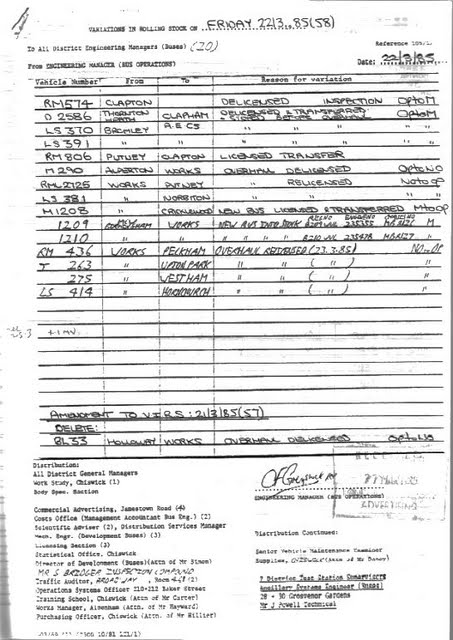 VARIATIONS IN ROLLING STOCK ON FRIDAY 22/3..85(58)
To All District Engineering Managers (Buses) (20)
Reference 105/1.
From ENGINEERING MANAGER (BUS OPERATIONS)
Date: 22/3/85
Vehicle Number From To Reason for variation
RM574 CLAPTON DELICENSED INSPECTION OptoM
D 2586 THORNTON HEATH CLAPHAM DELICENSED & TRANSFERRED & STORED BEFORE OVERHAUL OptoM
LS 370 BROMLEY A.E.C's " " "
LS 391 " " " " "
RM 806 PUTNEY CLAPTON LICENSED TRANSFER
M 290 ALPERTON WORKS OVERHAUL DELICENSED OptoNO
RML2125 WORKS PUTNEY " RELICENSED Notoop
LS 381 " NORBITON " " "
M1208 CRICKLEWOOD NEW BUS LICENSED & TRANSFERRED Mtoop
1209 WORKS NEW BUS INTO STOCK M
1210 " " " " " "
RM 436 WORKS PECKHAM OVERHAUL RELICENSED (23.3.85) NO-OP
T 263 " UPTON PARK " ( " ) "
275 " WEST HAM " ( " ) "
LS 414 " HORNCHURCH " ( " ) "
AMENDMENT TO V.I.R.S: 21/3/85(57)
DELETE:
BL33 HOLLOWAY WORKS OVERHAUL DELICENSED OptoNO
Distribution:
All District General Managers
Work Study, Chiswick (1)
Body Spec. Section
ENGINEERING MANAGER (BUS OPERATIONS)
Commercial Advertising, Jamestown Road
Costs Office (Management Accountant Bus Eng.) (2)
Scientific Adviser (2), Distribution Services Manager
Mech. Engr. (Development Buses) (3)
Licensing Section (3)
Statistical Office, Chiswick
Director of Development (Buses)(Attn of Mr Simon)
MR S BRIDGER INSPECTION COMPOUND
Traffic Auditor, BROADWAY, Room 448 (2)
Operations Systems Officer 210-212 Baker Street
Training School, Chiswick (Attn of Mr Carter)
Works Manager, Aldenham (Attn. of Mr Hayward)
Purchasing Officer, Chiswick (Attn of Mr Willier)
Distribution Continued:
Senior Vehicle Maintenance Examiner
Supplies, CHISWICK (Attn of Mr Dancy)
7 District Test Station Supervisors
Auxiliary Systems Engineer (Buses)
28 - 30 Grosvenor Gardens
Mr J Powell Technical